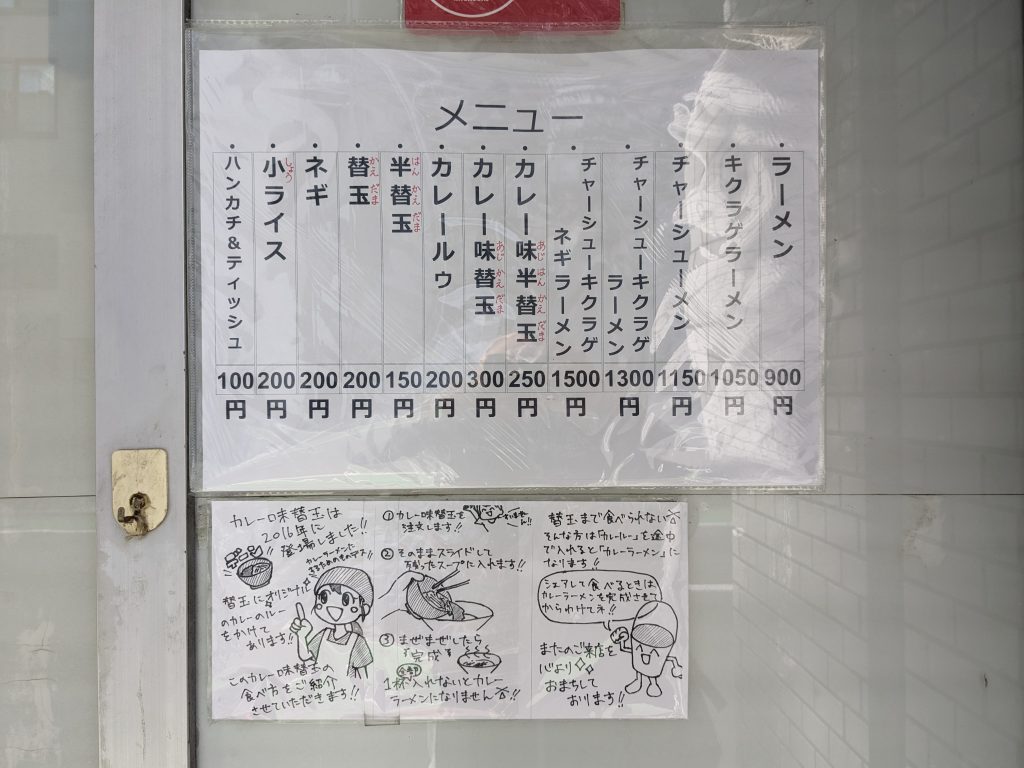 メニュー
・ラーメン 900円
・キクラゲラーメン 1050円
・チャーシューメン 1150円
・チャーシューキクラゲ
ラーメン 1300円
・チャーシューキクラゲ
ネギラーメン 1500円
・カレー味半替玉 250円
あじ はん かえ だま
・カレー味替玉 300円
あじ かえ だま
・カレールゥ 200円
・半替玉 150円
はん かえ だま
・替玉 200円
かえ だま
・ネギ 200円
・小ライス 200円
しょう
・ハンカチ&ティッシュ 100円
カレー味替玉は
2016年に
登場しました!!
カレーラーメンに
替玉にオリジナル
のカレーのルー
をかけて
あります!!
このカレー味替玉の
食べ方をご紹介
させていただきます!!
① カレー味替玉を
注文します!!
② そのままスライドして
残ったスープに入れます!!
③ まぜまぜしたら
完成
全部
1杯入れないとカレー
ラーメンになりません!!
替玉まで食べられない
そんな方は「カレールー」を途中
で入れると「カレーラーメン」に
なります!!
シェアして食べるときは
カレーラーメンを完成させて
からわけてネ!!
またのご来店を
心より
おまちして
おります!!